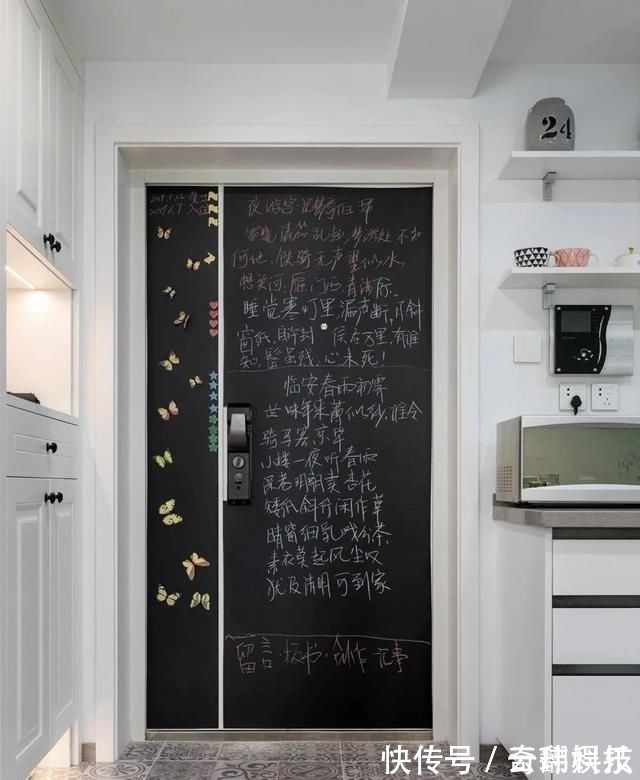 24
夜游宫·记梦寄伯浑
雪晓清笳乱起,梦游处、不知
何地。铁骑无声望似水。
想关河:雁门西,青海际。
睡觉寒灯里,漏声断,月斜
窗纸。自许封侯在万里,有谁
知,鬓虽残,心未死!
临安春雨初霁
世味年来薄似纱,谁令
骑马客京华
小楼一夜听春雨
深巷明朝卖杏花
矮纸斜行闲作草
晴窗细乳戏分茶
素衣莫起风尘叹
犹及清明可到家
留言·板书·创作·记事
快传号